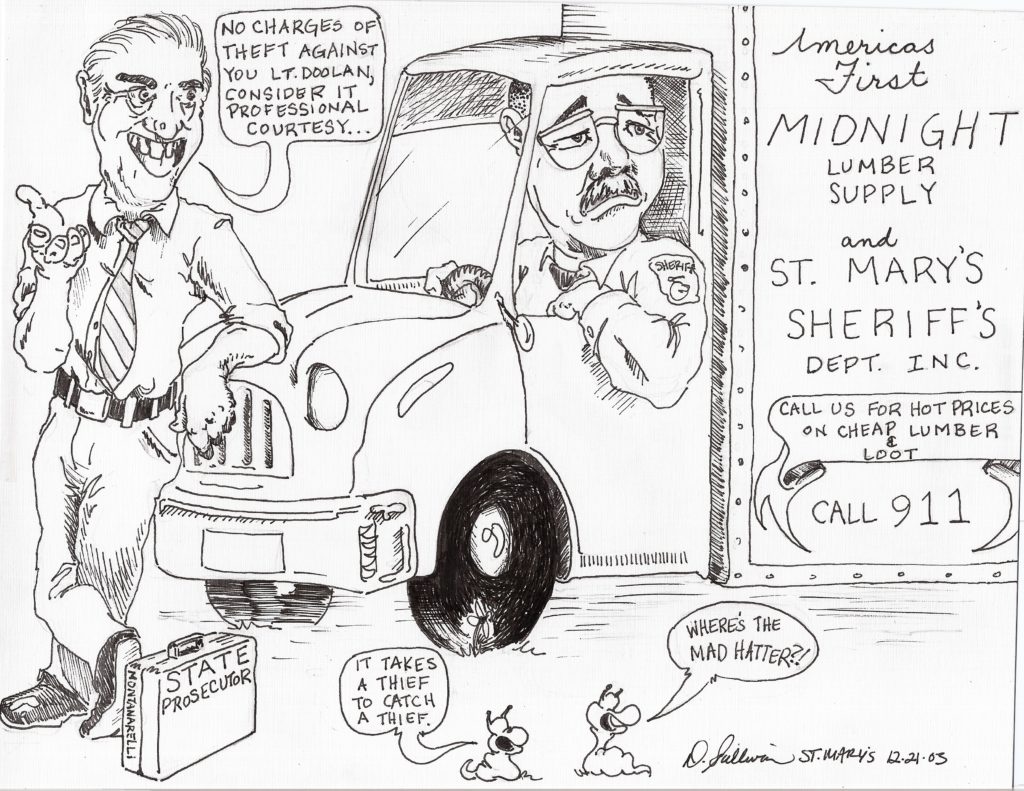 NO CHARGES OF
THEFT AGAINST
YOU LT. DOOLAN,
CONSIDER IT
PROFESSIONAL
COURTESY...
SHERIFF
Americas
First
MIDNIGHT
LUMBER
SUPPLY
and
ST. MARY'S
SHERIFF'S
DEPT. INC.
CALL US FOR HOT PRICES
ON CHEAP LUMBER
&
LOOT
CALL 911
STATE
PROSECUTOR
MONTANARELLI
IT TAKES
A THIEF
TO CATCH
A THIEF.
WHERE'S THE
MAD HATTER?!
D. Sullivan ST. MARY'S 12-21-03